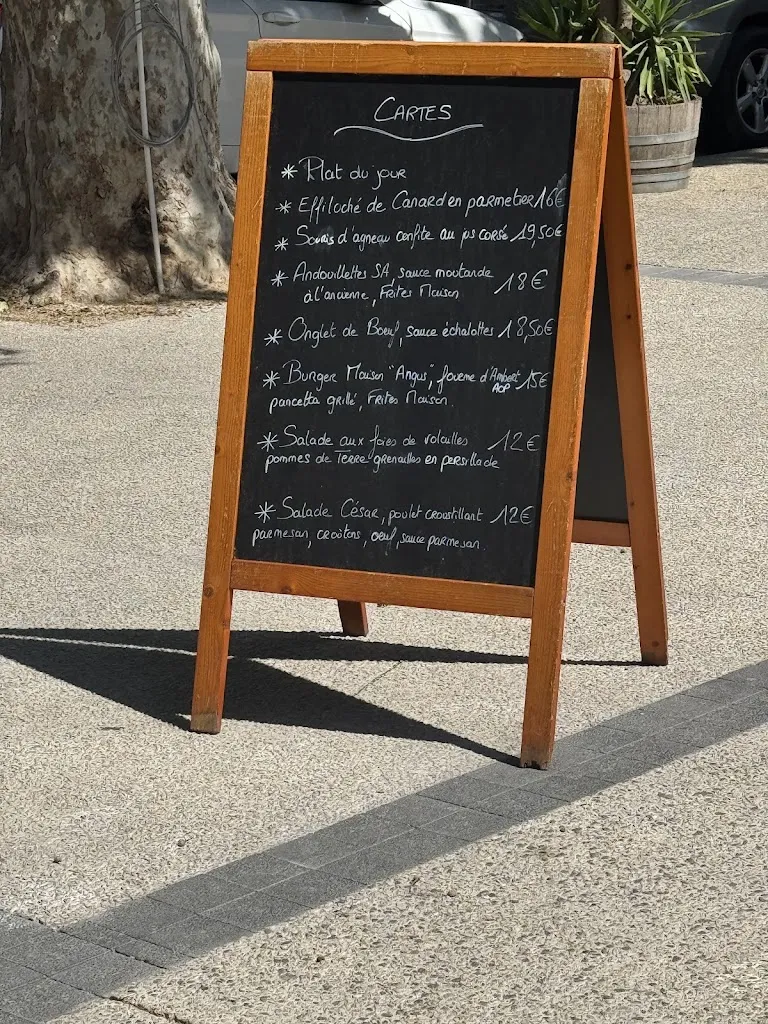 CARTES
* Plat du jour
* Effiloché de Canard en parmetier 16€
* Souris d'agneau confite au jus corsé 19,50€
* Andouillettes 5A, sauce moutarde 18€
à l'ancienne, Frites Maison
* Onglet de Boeuf, sauce échalottes 18,50€
* Burger Maison "Angus", fourme d'Ambert 15€
AOP
pancetta grillé, Frites Maison
* Salade aux foies de volailles 12€
pommes de Terre grenailles en persillade
* Salade César, poulet croustillant 12€
parmesan, croûtons, oeuf, sauce parmesan.